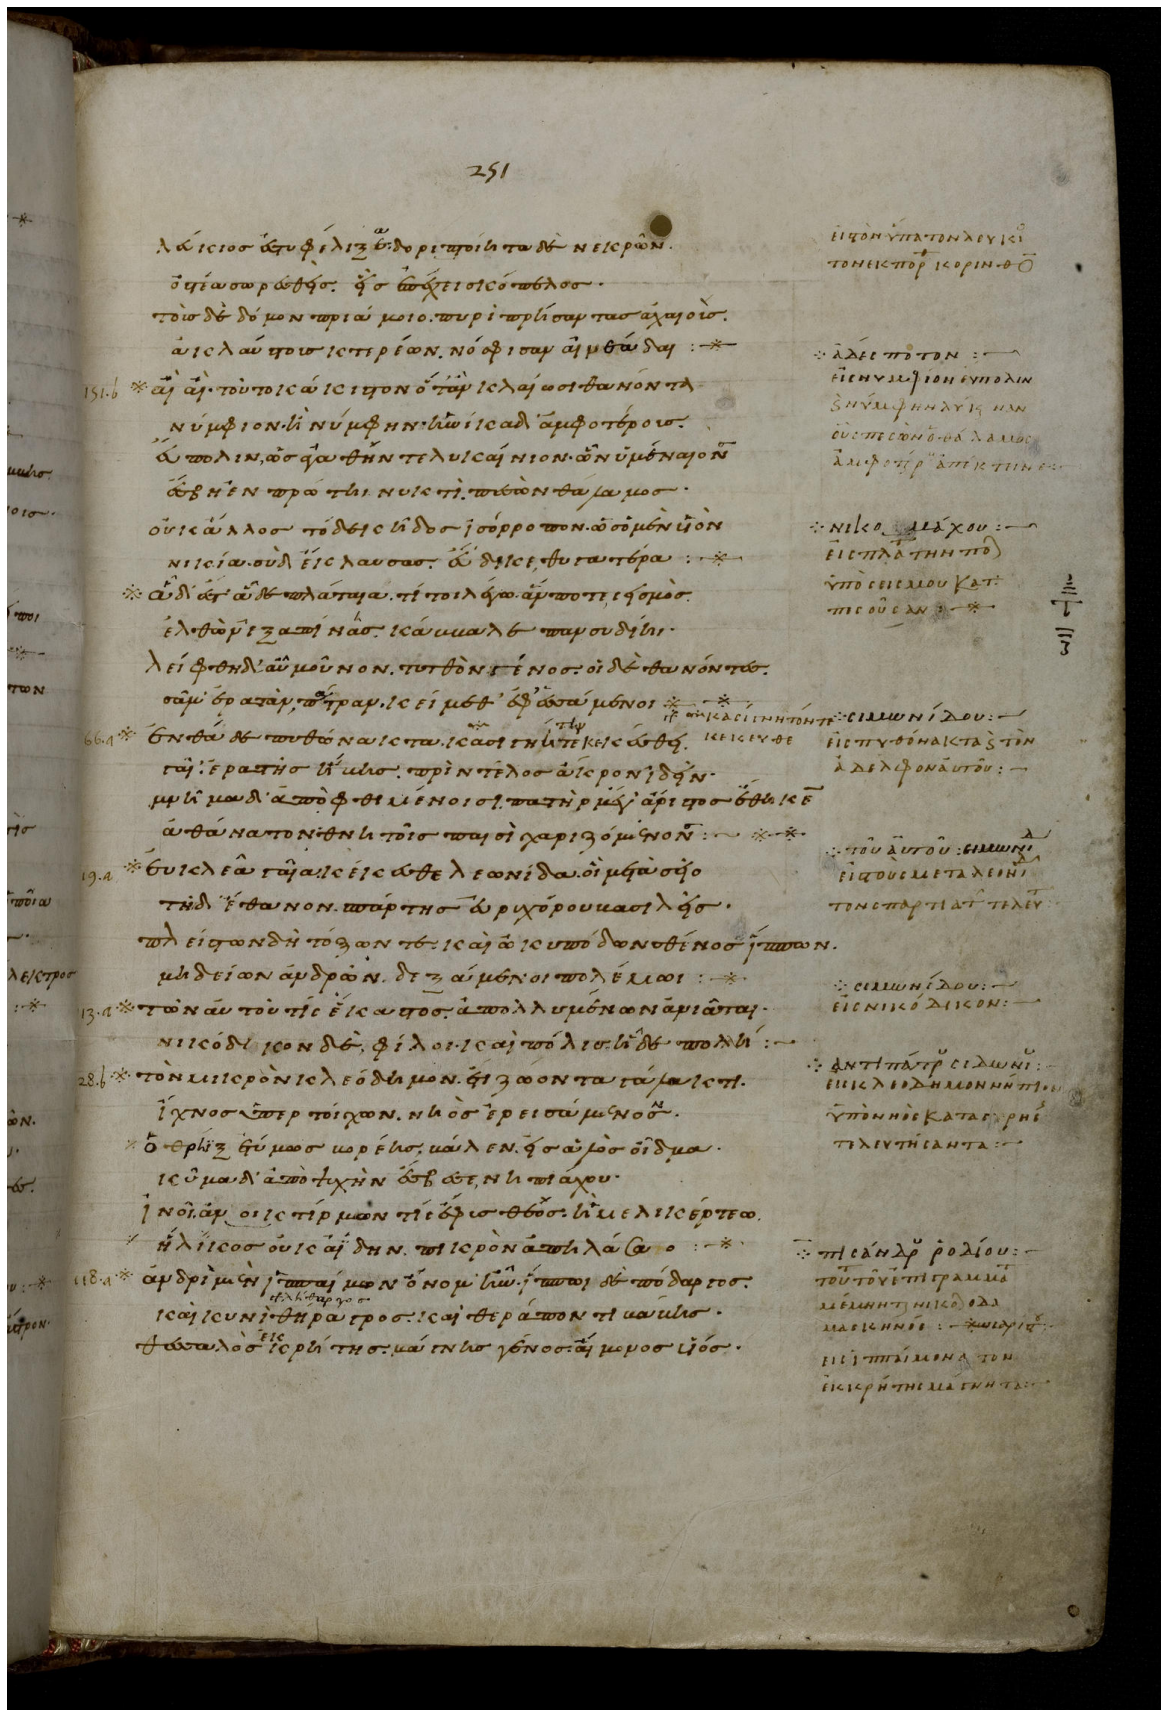 251
λεύκιος ἐστυφέλιξε δορι πτοίητα δὲ νεκρῶν
ὀστέα σωρευθεὶς εἷς ἐπέχει σκόπελος
τοὺς δὲ δόμον πριάμοιο πυρὶ πρήσαντας ἀχαιοὺς
ἀκλαύστους κτερέων νόσφισαν αἰνεάδαι
151.b αἶ αἶ τοῦτο κάκιστον ὅταν κλαίωσι θανόντα
νύμφιον ἢ νύμφην ἡνίκα δ' ἀμφοτέρους
εὔπολιν ὡς ἀγαθήν τε λυκαίνιον ὧν ὑμέναιον
ἔσβεσεν ἐν πρώτηι νυκτὶ πεσὼν θάλαμος
οὐκ ἄλλος τόδε κῆδος ἰσόρροπον ὧι σὺ μὲν υἱὸν
νίκι σὺ δ' ἔκλαυσας εὔδικε θυγατέρα
ἅδ' ἔσθ' ἅδε πλάταια τί τοι λέγω ἅν ποτε σεισμὸς
ἐλθὼν ἐξαπίνας κάββαλε πασσυδίηι
λείφθη δ' αὖ μοῦνον τυτθὸν γένος οἱ δὲ θανόντες
σᾶμ' ἐρατὰν πάτραν κείμεθ' ἐφεσσάμενοι
66.a ἐνθάδε πυθώνακτα κασίγνητόν τε κέκευθε
γαῖ' ἐρατῆς ἥβης πρὶν τέλος ἄκρον ἰδεῖν
μνῆμα δ' ἀποφθιμένοισι πατὴρ μέγ' ἄριστος ἔθηκε
ἀθάνατον θνητοῖς παισὶ χαριζόμενον
19.a εὐκλέα γαῖα κέκευθε λεωνίδα οἳ μετὰ σεῖο
τῆιδ' ἔθανον σπάρτης εὐρυχόρου βασιλεῦς
πλείστων δὴ τόξων τε καὶ ὠκυπόδων σθένος ἵππων
μηδείων ἀνδρῶν δεξάμενοι πολέμωι
13.a τῶν αὐτοῦ τις ἕκαστος ἀπολλυμένων ἀνιᾶται
νικόδικον δὲ φίλοι καὶ πόλις ἥδε πολλή
28.b τὸν μικρὸν κλεόδημον ἔτι ζώοντα γάλακτι
ἴχνος ὑπὲρ τοίχων νηὸς ἐρεισάμενον
ὁ θρῆιξ ἐτύμως βορέης βάλεν εἰς ἁλὸς οἶδμα
κῦμα δ' ἀπὸ ψυχὴν ἔσβεσε νηπιάχου
ἰνοῖ ἀνοικτίρμων τις ἔφυς θεός ἣ μελικέρτεω
ἥλικος οὐκ ἀΐδην πικρὸν ἀπηλάσαο
118.a ἀνδρὶ μὲν ἱππαίμων ὄνομ' ἦν ἵππωι δὲ πόδαργος
καὶ κυνὶ θήραγρος καὶ θεράποντι βάβης
θεσσαλὸς ἐκ κρήτης μάγνης γένος αἵμονος υἱός
εἰς τὸν ὕπατον λούκι
τὸν ἐκπορ κορινθο
ἀδέσποτον
εἰς νυμφίον εὔπολιν
νικομάχου
εἰς πλάταιαν τὴν πολ
ὑπὸ σεισμοῦ κατα
ποθεῖσαν
κασίγνητόν τε
κέκευθε
σιμωνίδου
εἰς πυθόνακτα καὶ τὸν
ἀδελφὸν αὐτοῦ
τοῦ αὐτοῦ σιμωνιδ
εἰς τοὺς μετὰ λεονιδ
τον σπαρτιατ τελευτ
σιμωνίδου
εἰς νικόδικον
ἀντιπάτρου σιδωνίου
εἰς κλεόδημον νήπιον
τελευτήσαντα
πισάνδρου ῥοδίου
τοῦτο τὸ ἐπίγραμμα
εἰς ἱππαίμονα τὸν
ἐκ κρήτης μάγνητα